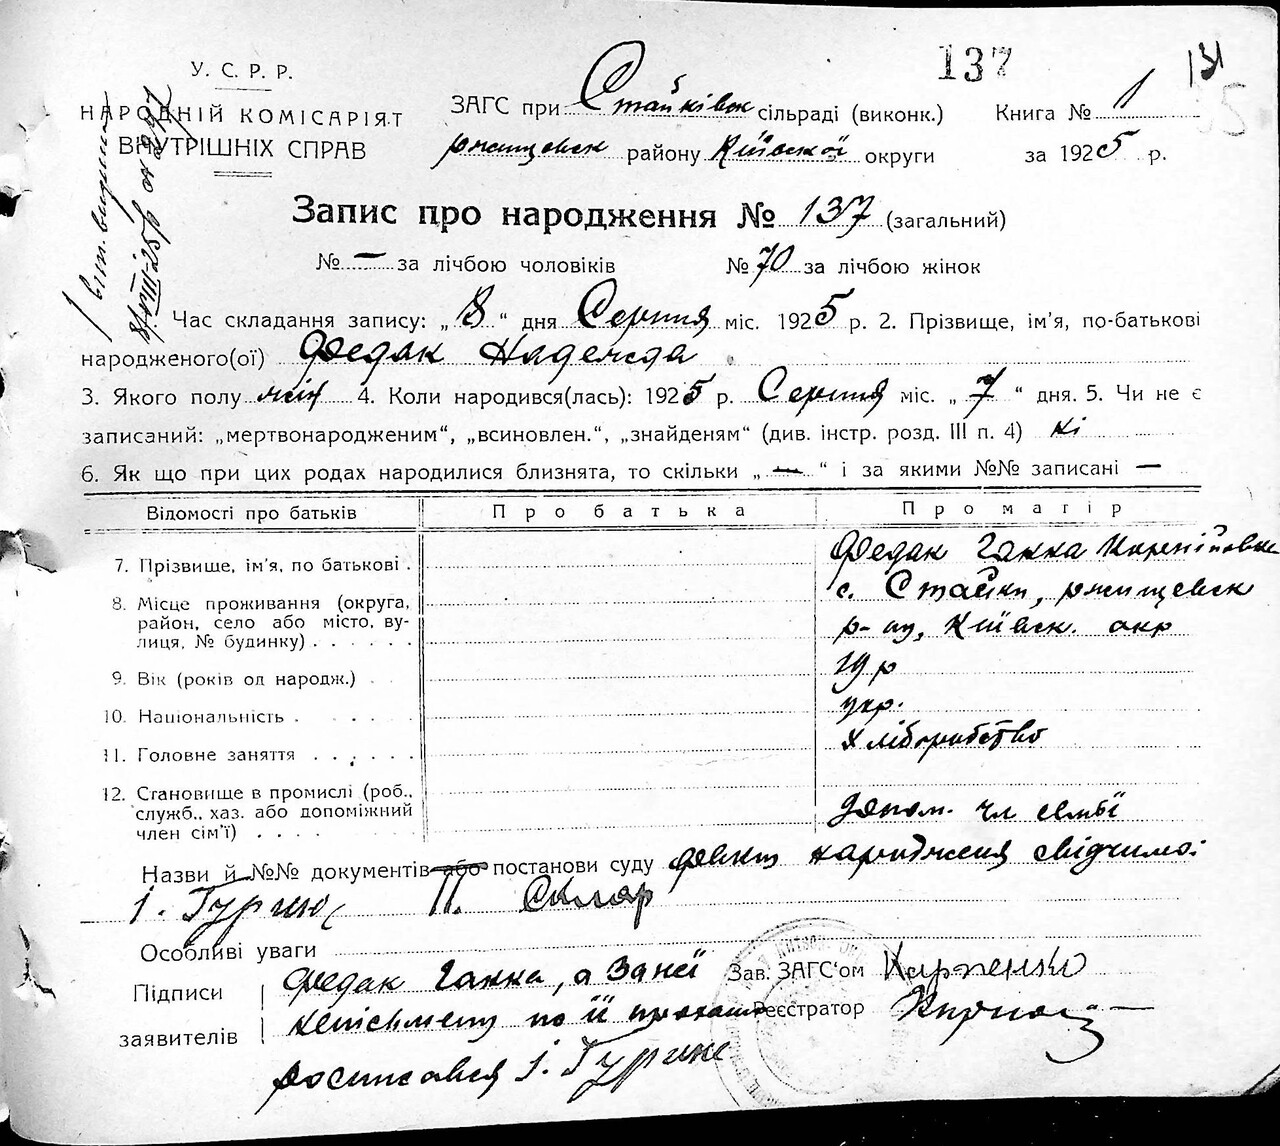 137
У. С. Р. Р.
НАРОДНІЙ КОМІСАРІЯТ
ВНУТРІШНІХ СПРАВ
ЗАГС при Стайківск сільраді (виконк.) Книга № 1
ржищевск району Київської округи за 1925 р.
Запис про народження № 137 (загальний)
№ — за лічбою чоловіків № 70 за лічбою жінок
Час складання запису: „ 8 “ дня Серпня міс. 1925 р. 2. Прізвище, ім'я, по-батькові
народженого(ої) Федак Надежда
3. Якого полу жін 4. Коли народився(лась): 1925 р. Серпня міс. „ 7 “ дня. 5. Чи не є
записаний: „мертвонародженим“, „всиновлен.“, „знайденям“ (див. інстр. розд. III п. 4) ні
6. Як що при цих родах народилися близнята, то скільки „ — “ і за якими №№ записані —
Відомості про батьків Про батька Про матір
7. Прізвище, ім'я, по батькові . Федак Ганна
8. Місце проживання (округа, с. Стайки, ржищевск
район, село або місто, ву- р-ну, Київск. окр
лиця, № будинку) . . . . . .
9. Вік (років од народж.) . . 19 р
10. Національність . . . . . укр.
11. Головне заняття . . . . . . хліборобство
12. Становище в промислі (роб.,
служб., хаз. або допоміжний допом. чл сімьї
член сім'ї) . . . .
Назви й №№ документів або постанови суду факт народження свідчили:
1. Гурин П. Скляр
Особливі уваги
Підписи
заявителів
Федак Ганна, а за неї
неписьмену по її прохан
росписався І. Гурин
Зав. ЗАГС'ом Карпенко
Реєстратор